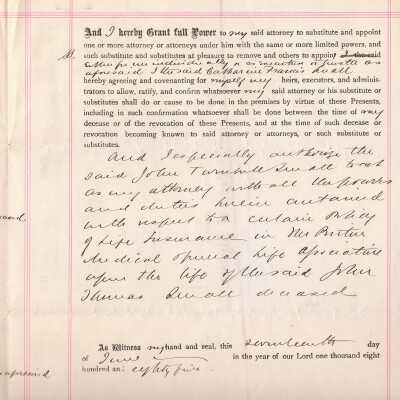 And I hereby Grant full Power to my said attorney to substitute and appoint
one or more attorney or attorneys under him with the same or more limited powers, and
such substitute and substitutes at pleasure to remove and others to appoint I the said
individually
aforesaid I the said Catharine Small
hereby agreeing and covenanting for myself my heirs, executors, and adminis-
trators to allow, ratify, and confirm whatsoever my said attorney or his substitute or
substitutes shall do or cause to be done in the premises by virtue of these Presents,
including in such confirmation whatsoever shall be done between the time of my
decease or of the revocation of these Presents, and at the time of such decease or
revocation becoming known to said attorney or attorneys, or such substitute or
substitutes.
And I especially authorize the
said John Turnbull Small to act
as my attorney with all the powers
and duties herein contained
with respect to a certain Policy
of Life Insurance in the Briton
Medical General Life Association
upon the life of the said John
Thomas Small deceased
As Witness my hand and seal, this seventeenth day
of June in the year of our Lord one thousand eight
hundred and eighty five.